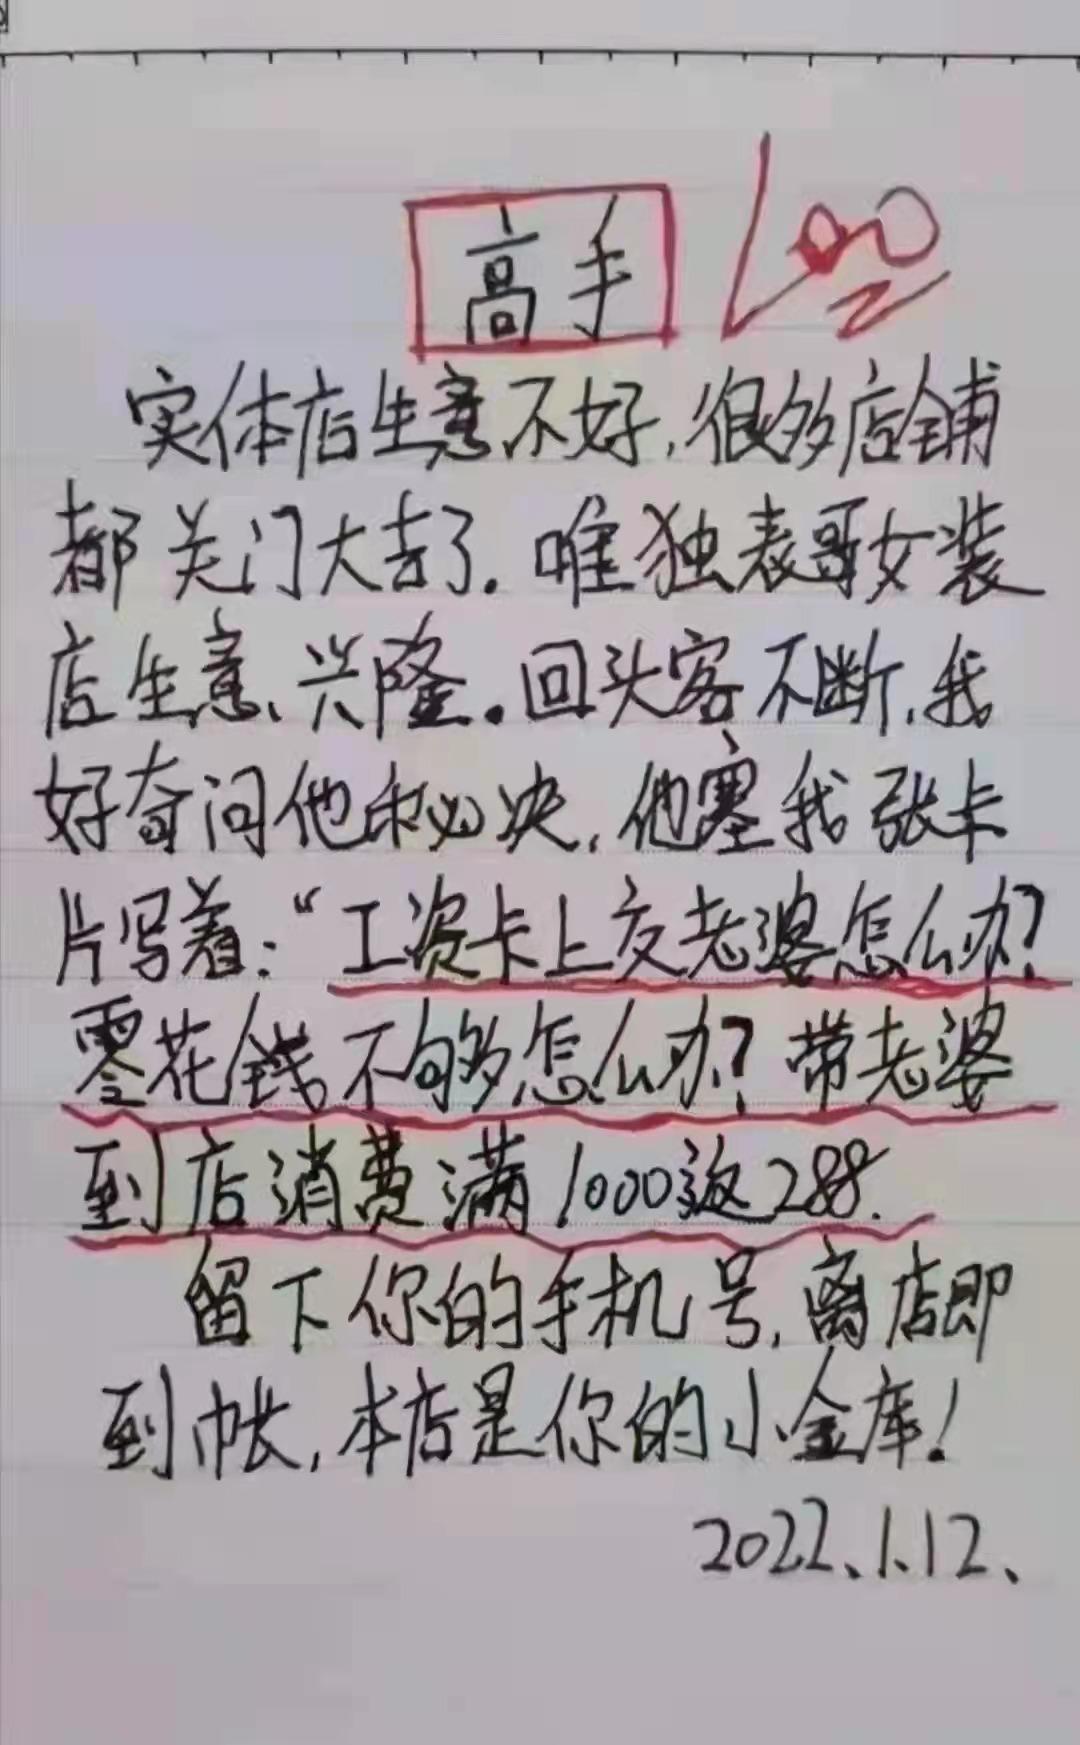 高手 100
实体店生意不好,很多店铺
都关门大吉了.唯独表哥女装
店生意、兴隆。回头客不断,我
好奇问他秘决,他塞我张卡
片写着:“工资卡上交老婆怎么办?
零花钱不够怎么办?带老婆
到店消费满1000返288.
留下你的手机号,离店即
到帐,本店是你的小金库!
2022、1.12、